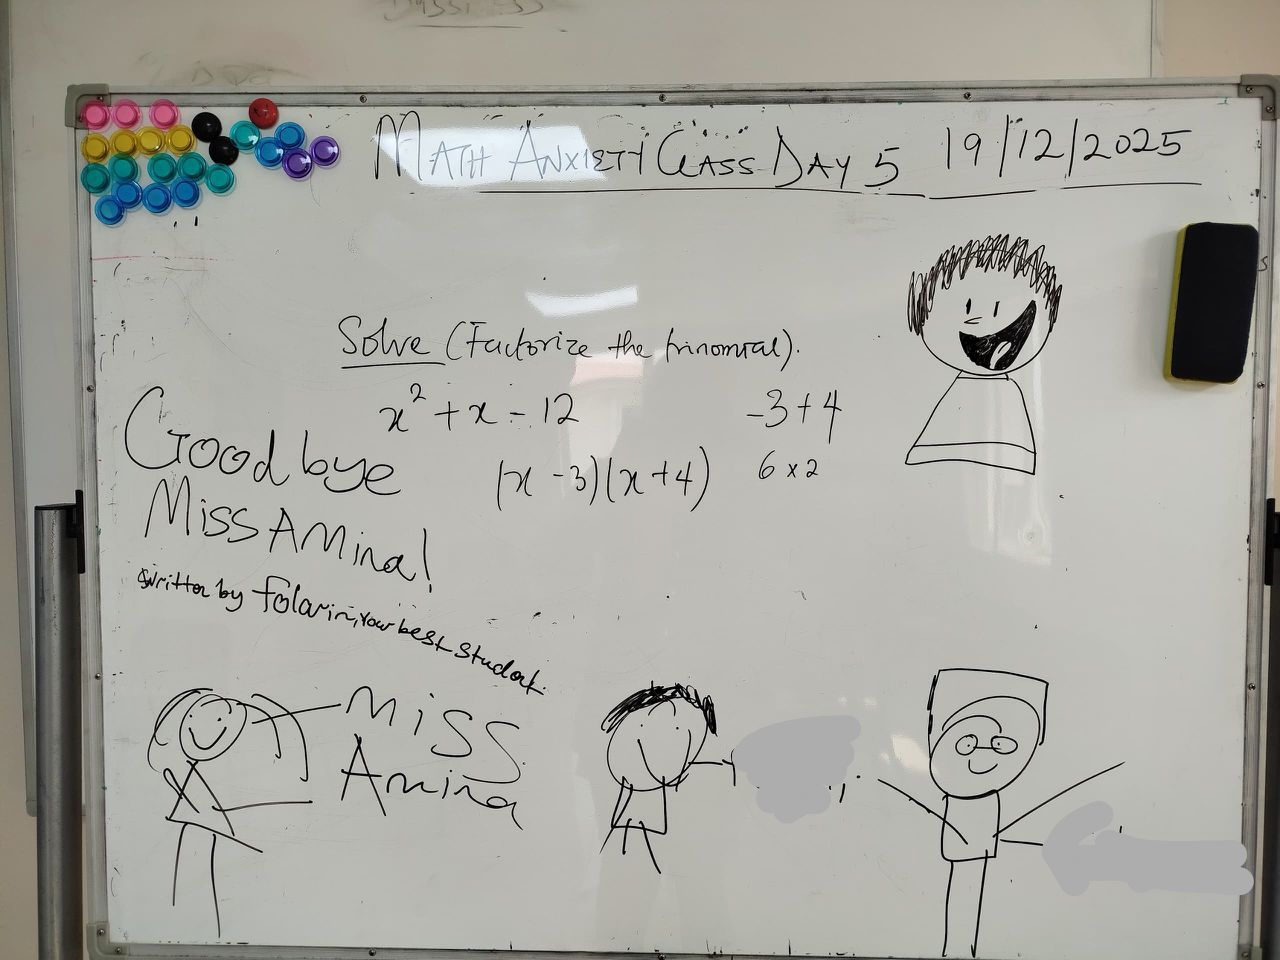 MATH ANXIETY CLASS DAY 5 19/12/2025
Solve (Factorize the trinomial).
x² + x - 12
-3 + 4
(x - 3)(x + 4)
6 x 2
Goodbye
Miss Amina!
written by folarin, your best student.
Miss
Amina